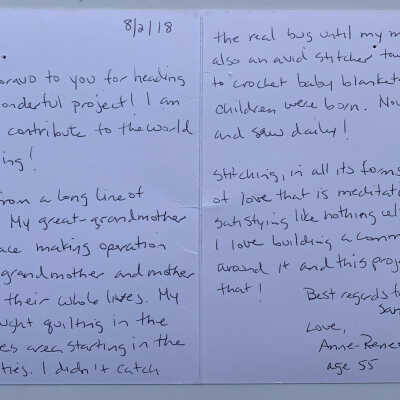 8/2/18
bravo to you for heading
wonderful project! I am
contribute to the world
ing!
from a long line of
My great-grandmother
ace making operation
grandmother and mother
their whole lives. My
ught quilting in the
es area starting in the
ties. I didn't catch
the real bug until my m
also an avid stitcher tau
to crochet baby blankets
children were born. Now
and sew daily!
Stitching, in all its forms
of love that is meditat
satisfying like nothing els
I love building a comm
around it and this proj
that!
Best regards to
San
Love,
Anne-Renee
age 55